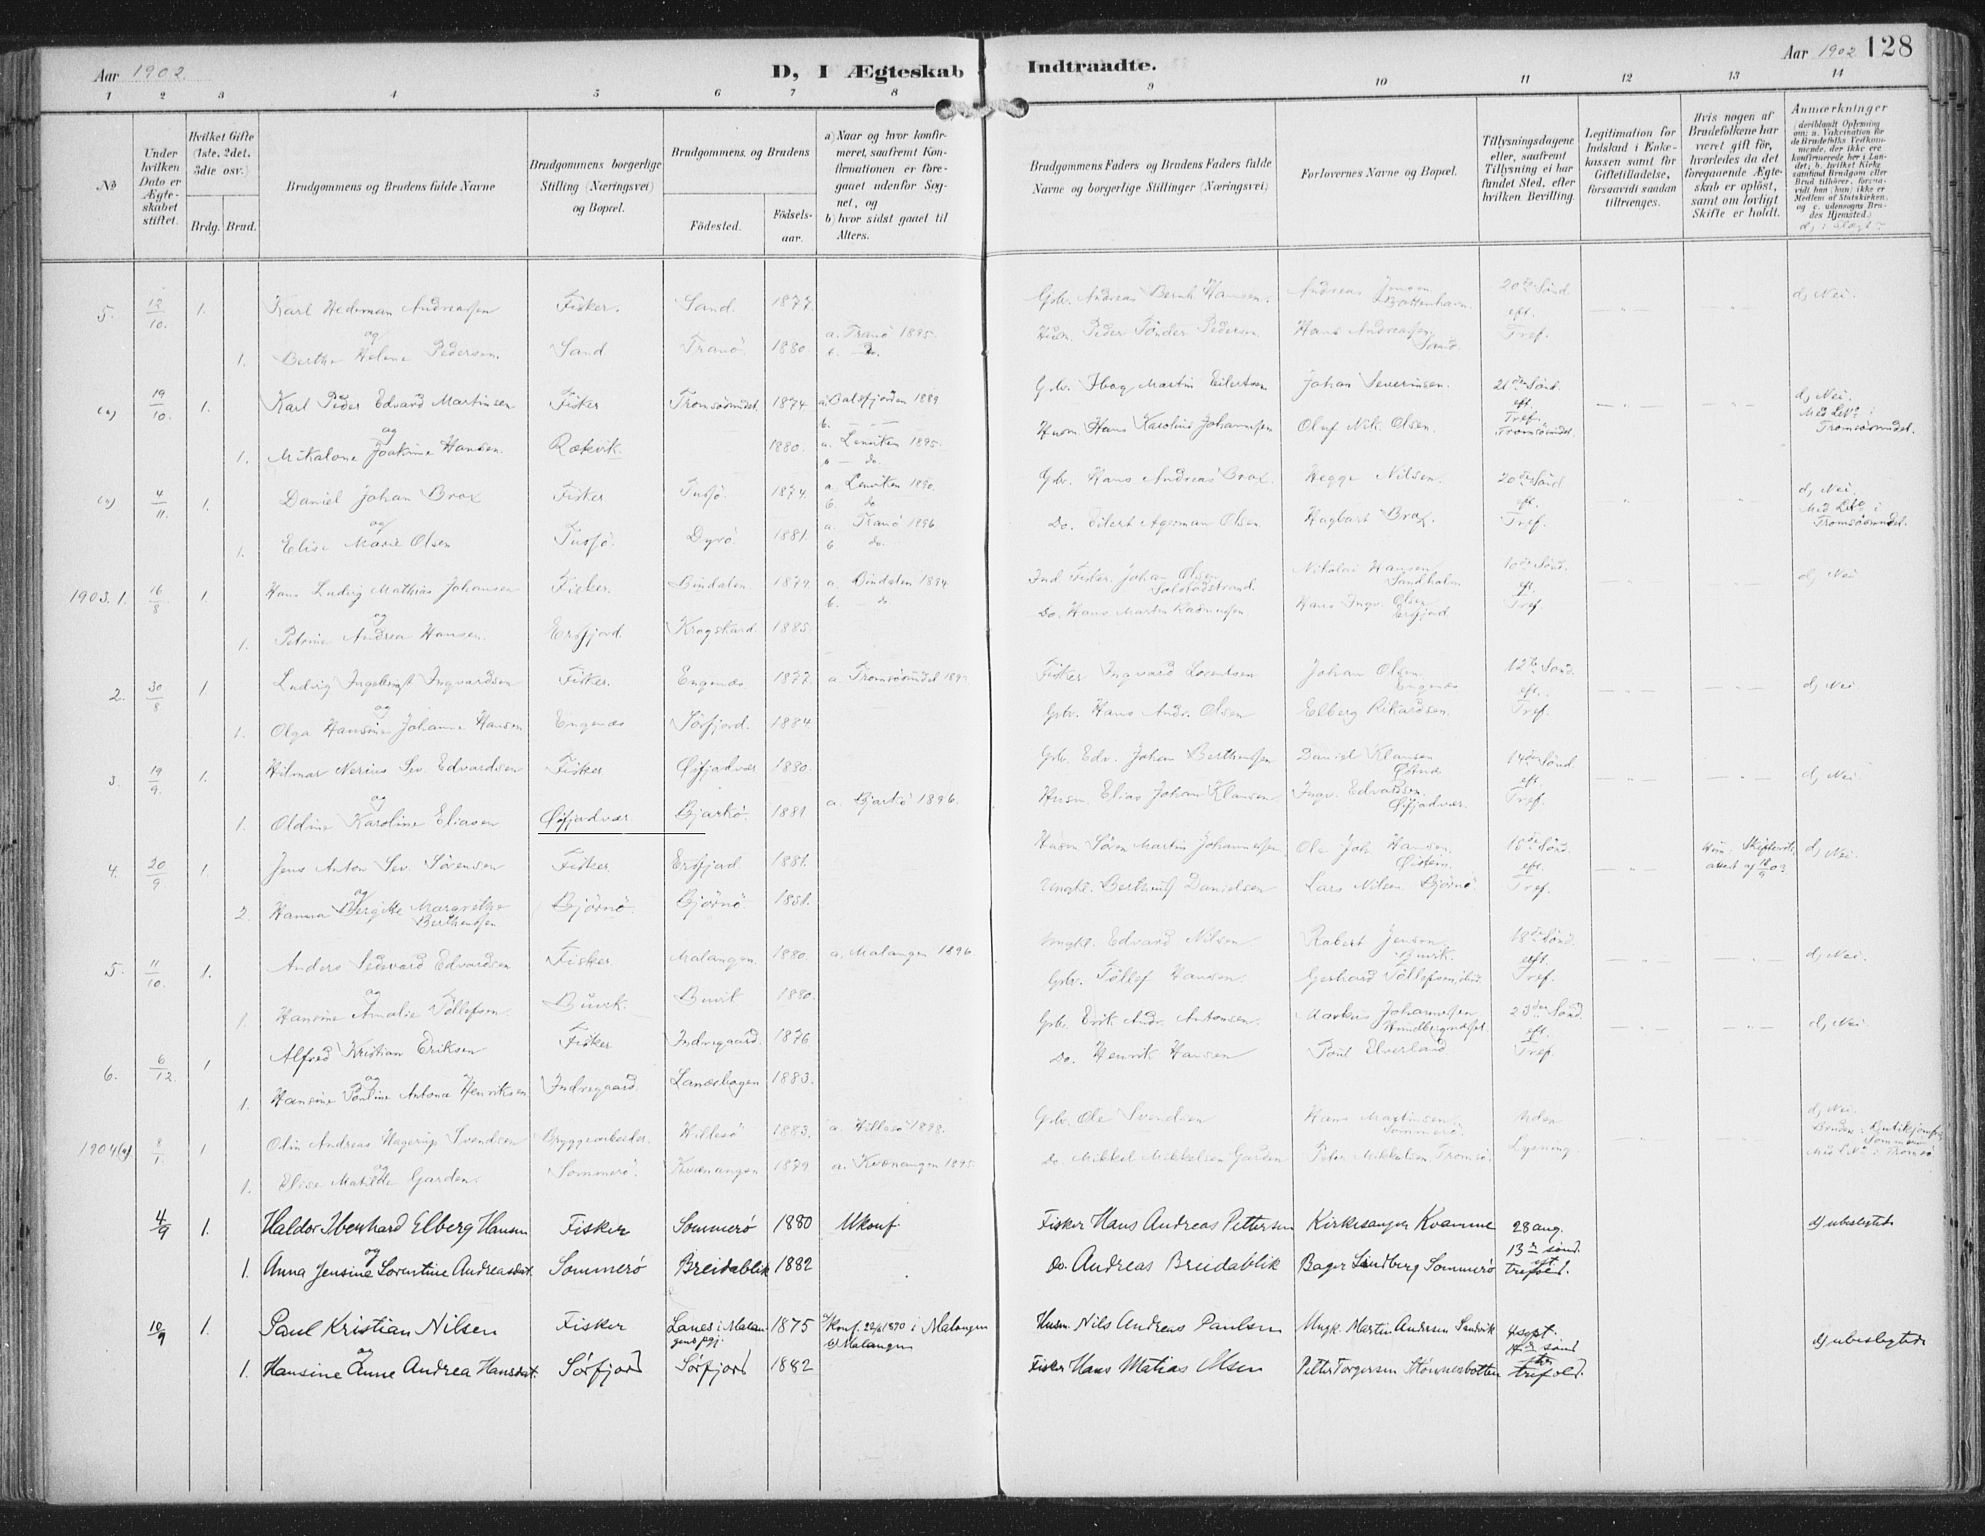 Aar 1902.
D, I Ægteskab Indtraadte.
Aar 1902 128
1 2 3 4 5 6 7 8 9 10 11 12 13 14
No
Under hvilken Dato er Ægteskabet stiftet.
Hvilket Gifte (1ste, 2det, 3die osv.)
Brdg. Brud.
Brudgommens og Brudens fulde Navne
Brudgommens borgerlige Stilling (Næringsvei) og Bopæl.
Brudgommens og Brudens
Födested.
Födsels-aar.
a) Naar og hvor konfirmeret, saafremt Konfirmationen er foregaaet udenfor Sognet, og
b) hvor sidst gaaet til Alters.
Brudgommens Faders og Brudens Faders fulde Navne og borgerlige Stillinger (Næringsvei)
Forlovernes Navne og Bopæl.
Tillysningsdagene eller, saafremt Tillysning ei har fundet Sted, efter hvilken Bevilling.
Legitimation for Indskud i Enkekassen samt for Giftetilladelse, forsaavidt saadan tiltrænges.
Hvis nogen af Brudefolkene har været gift, hvorledes da det foregaaende Ægteskab er oplöst, samt om lovligt Skifte er holdt.
Anmærkninger
5. 12/10. 1. Karl Hedeman Andreassen Fisker. Sand. 1877. Gbr. Andreas Bernh. Hansen. Andreas Jensen Bottenhavn. 20de Sönd. d) Nei.
og eft.
1. Berthe Helene Pedersen. Sand Tranö 1880. a. Tranö 1895. b. do. Husm. Peder Tönder Pedersen Hans Andreassen Sand. Tref.
(a) 19/10. 1. Karl Peder Edvard Martinsen Fisker Tromsösundet. 1874 a. Balsfjorden 1889 b. Gbr. Martin Eilertsen Johan Severinsen. 21de Sönd. d) Nei.
og eft. Med Lev. i Tromsösundet.
1. Mikaline Joakime Hansen. Rækvik. 1880. a. Lenviken 1895. b do. Husm. Hans Karolius Johannesen Oluf Nik. Olsen. Tref. Tromsösundet.
(a) 4/11. 1. Daniel Johan Brox Fisker Tusjö. 1874. a. Lenviken 1890. b. do Gbr. Hans Andreas Brox. Hegge Nilsen. 20de Sönd d) Nei.
og eft. Med Lev. i Tromsösundet.
1. Elise Marie Olsen Tusjö. Dyrö 1881. a. Tranö 1896 b do. Do. Eilert Agerman Olsen Hagbart Brox. Tref.
1903. 1. 16/8. 1. Hans Ludvig Mathias Johansen Fisker. Bindalen. 1879 a. Bindalen 1894 b. do. Ind. Fisker Johan Olsen Solstadstrand. Nikolai Hansen Sandholm 10de Sönd. d) Nei
og eft.
1. Petrine Andrea Hansen. Ersfjord. Krogskard. 1885. Do. Hans Martin Rasmussen Hans Ingv. Olsen Ersfjord Tref.
2. 30/8 1 Ludvig Ingebrigt Ingvardsen Fisker. Engenæs 1877. a Tromsösundet Fisker Ingvard Lorentsen Johan Olsen Engenæs 12te Sönd. d) Nei.
og eft.
1. Olga Hansine Johanne Hansen Engenæs Sörfjord. 1884 Gbr. Hans Andr. Olsen Elberg Rikardsen. Tref.
3 19/9. 1. Hilmar Nerius Sev. Edvardsen Fisker Öifjordvær 1880. Gbr. Edv. Johan Berthensen Daniel Klausen 14de Sönd d) Nei.
og eft
1. Oldine Karoline Eliasen Öifjordvær Bjarkö. 1881 a. Bjarkö 1896. Husm. Elias Johan Klausen Ingv. Edvardsen. Öifjordvær. Tref.
4. 20/9 1 Jens Anton Sev. Sörensen Fisker Ersfjord 1881. Husm Sören Martin Johannesen Ole Joh. Hansen 15de Sönd. d) Nei.
og eft.
2. Hanna Bergitte Margrethe Berthensen Björnö. Björnö 1881. Ungkl. Berthens Danielsen Lars Nilsen Björnö. Tref.
5. 11/10. 1. Anders Sedevard Edvardsen Fisker. Malangen. 1880. a. Malangen 1896 Ungkl. Edvard Nilsen. Robert Jensen Buvik. 18de Sönd. d) Nei.
og eft.
1. Hansine Amalie Töllefsen. Buvik. Buvik 1880. Gbr. Töllef Hansen. Gerhard Töllefsen, ibid. Tref.
6. 6/12. 1 Alfred Kristian Eriksen Fisker Indregaard. 1876 Gbr. Erik Andr. Antonsen. Markus Johannesen 23de Sönd. d) Nei.
og eft.
1. Hansine Pauline Antona Henriksen Indregaard. Lanesskogen 1883. Do. Henrik Hansen Poul Elverland Tref.
1904 (a) 8/1. 1 Odin Andreas Hagerup Svendsen Bryggearbeider. Hillesö 1883. a. Hillesö 1898. Gbr. Ole Svendsen Hans Martinsen Sommerö. Uden d) Nei.
og
1. Elise Matilde Garden. Sommerö. Kvænangen 1879 a. Kvænangen 1895. Do. Mikkel Mikkelsen Garden Peter Mikkelsen, Tromsö. Lysning. Med Lev. i Tromsö
4/9 1. Haldor Ibenhard Elberg Hansen Fisker Sommerö 1880 Ukonf. Fisker Hans Andreas Pettersen Kirkesanger Kvamme 28 aug. d) ubeslegtede
og 13de sönd.
1. Anna Jensine Lorentine Andreasdat. Sommerö Breidablik 1882 Do. Andreas Breidablik Bager Lindberg Sommerö eft trefold.
10/9 1. Paul Kristian Nilsen Fisker Lanes i Malangens pgj. 1875 a) Konf. 22/6 1890 i Malangen b) Malangen Husm. Nils Andreas Paulsen Ungk. Martin Andersen Sandvik 4 sept. d) ubeslegtede
og 14de sönd
1. Hansine Anne Andrea Hansdat. Sörfjord Sörfjord 1882 Fisker Hans Matias Olsen Petter Torgersen Stönnesbotten efter trefold.